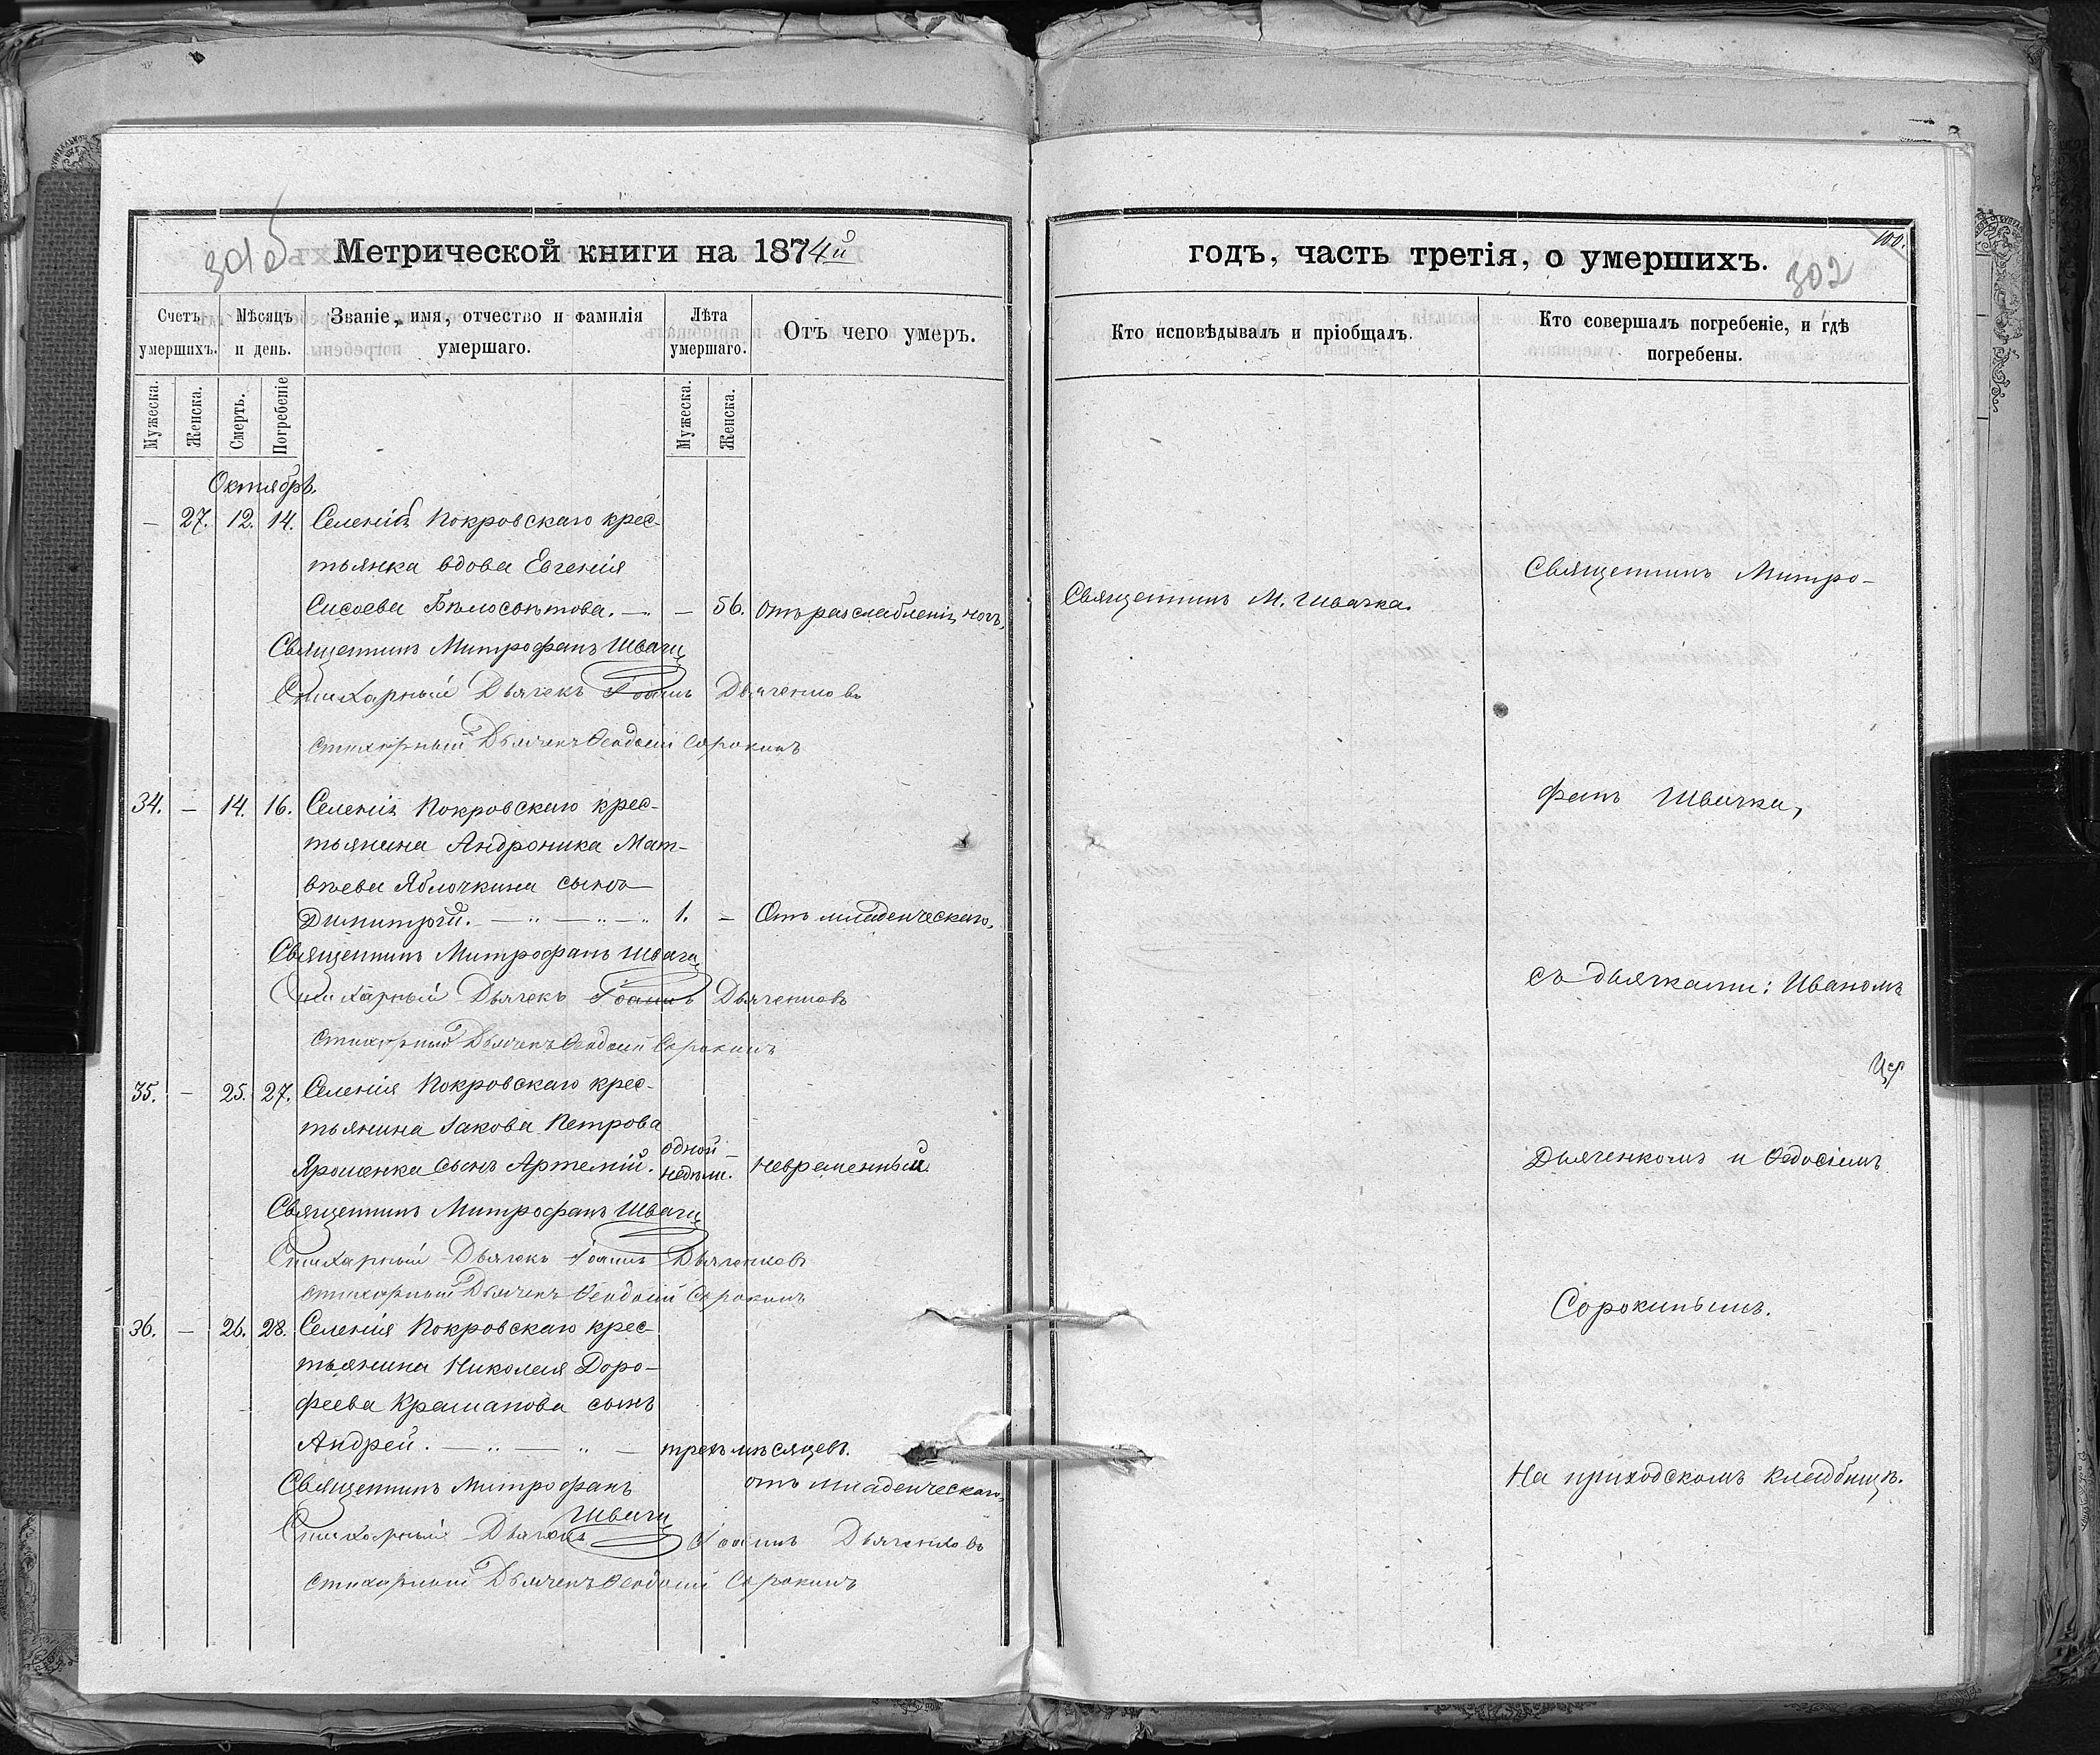 301об
Метрической книги на 1874й
Счетъ умершихъ.
Мѣсяцъ и день.
Званіе, имя, отчество и фамилія умершаго.
Лѣта умершаго.
Отъ чего умеръ.
Мужеска.
Женска.
Смерть.
Погребеніе
Мужеска.
Женска.
Октябрь.
— 27. 12. 14. Селенія Покровскаго крес-
тьянка вдова Евгенія
Сисоева Бѣлосвѣтова. — — 56. Отъ разслабленія ногъ.
Священникъ Митрофанъ Швачка
Стихарный Дьячекъ Іоаннъ Дьяченковъ
Стихарный Дьячекъ Ѳеодосій Сорокинъ
34. — 14. 16. Селенія Покровскаго крес-
тьянина Андроника Мат-
вѣева Яблочкина сынъ
Димитрій. — „ — „ — „ 1. — Отъ младенческаго.
Священникъ Митрофанъ Швачка
Стихарный Дьячекъ Іоаннъ Дьяченковъ
Стихарный Дьячекъ Ѳеодосій Сорокинъ
35. — 25. 27. Селенія Покровскаго крес-
тьянина Іакова Петрова
Ярошенка сынъ Артемій. одной недѣли. — Невременный.
Священникъ Митрофанъ Швачка
Стихарный Дьячекъ Іоаннъ Дьяченковъ
Стихарный Дьячекъ Ѳеодосій Сорокинъ
36. — 26. 28. Селенія Покровскаго крес-
тьянина Николая Доро-
феева Крашанова сынъ
Андрей. — „ — „ — трехъ мѣсяцевъ.
отъ младенческаго.
Священникъ Митрофанъ
Швачка
Стихарный Дьячекъ Іоаннъ Дьяченковъ
Стихарный Дьячекъ Ѳеодосій Сорокинъ
100.
годъ, часть третія, о умершихъ.
302
Кто исповѣдывалъ и пріобщалъ.
Кто совершалъ погребеніе, и гдѣ погребены.
Священникъ М. Швачка.
Священникъ Митро-
фанъ Швачка,
съ дьячками: Иваномъ
Дьяченкомъ и Ѳедосіемъ
Сорокинымъ.
На приходскомъ кладбищѣ.